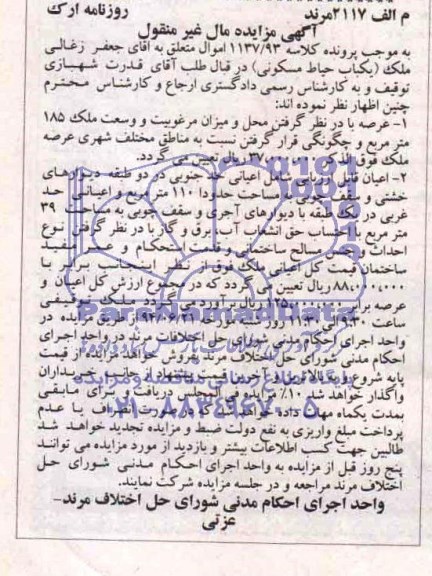 م الف ۲۱۱۷مرند روزنامه ارک
آگهی مزایده مال غیر منقول
به موجب پرونده کلاسه ۱۱۳۷/۹۳ اموال متعلق به آقای جعفر زغالی
ملک (یکباب حیاط مسکونی) در قبال طلب آقای قدرت شهبازی
توقیف و به کارشناس رسمی دادگستری ارجاع و کارشناس محترم
چنین اظهار نظر نموده اند:
۱- عرصه با در نظر گرفتن محل و میزان مرغوبیت و وسعت ملک ۱۸۵
متر مربع و چگونگی قرار گرفتن نسبت به مناطق مختلف شهری عرصه
ملک فوق الذکر ۳۷/۰۰۰/۰۰۰ ریال تعیین می گردد.
۲- اعیان قابل ارزیابی شامل اعیانی حد جنوبی در دو طبقه دیوارهای
خشتی و سقف چوبی به مساحت حدودا ۱۱۰ متر مربع و اعیانی حد
غربی در یک طبقه با دیوارهای آجری و سقف چوبی به مساحت ۳۹
متر مربع با احتساب حق انشعاب آب، برق و گاز با در نظر گرفتن نوع
احداث و جنس مصالح ساختمانی و قدمت استحکام و عمر مفید
ساختمان قیمت کل اعیانی ملک فوق از نظر اینجانب برابر با
۸۸,۰۰۰,۰۰۰ ریال تعیین می گردد که در مجموع ارزش کل اعیان و
عرصه برابر ۱۲۵,۰۰۰,۰۰۰ ریال برآورد می گردد ملک توقیفی
ساعت ۹:۳۰ الی ۱۱:۳۰ روز شنبه مورخه ۹۴/۰۶/۲۱ از طریق مزایده در
واحد اجرای احکام مدنی شورای حل اختلافات مرند در واحد اجرای
احکام مدنی شورای حل اختلاف مرند بفروش خواهد مزایده از قیمت
پایه شروع و به بالاترین و آخرین قیمت پیشنهاد از جانب خریداران
واگذار خواهد شد ۱۰٪ مزایده فی المجلس دریافت و برای مابقی
بمدت یکماه مهلت داده خواهد شد که در صورت انصراف یا عدم
پرداخت مبلغ واریزی به نفع دولت ضبط و مزایده تجدید خواهد شد
طالبین جهت کسب اطلاعات بیشتر و بازدید از مورد مزایده می توانند
پنج روز قبل از مزایده به واحد اجرای احکام مدنی شورای حل
اختلاف مرند مراجعه و در جلسه مزایده شرکت نمایند.
واحد اجرای احکام مدنی شورای حل اختلاف مرند–
عزتی
ParsNamadData
پایگاه اطلاع رسانی مناقصه و مزایده
۰۲۱-۸۸۳۴۹۶۷۰-۵